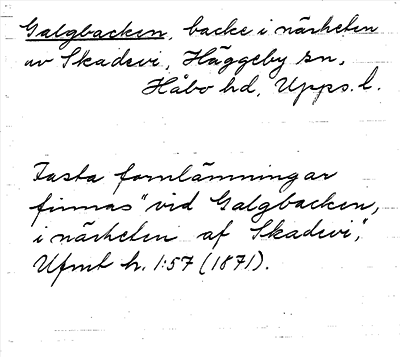 Galgbacken, backe i närheten
av Skadevi, Häggeby sn,
Håbo hd, Upps. l.
Fasta fornlämningar
finnas "vid Galgbacken,
i närheten af Skadevi",
Ufmt h. 1:57 (1871).